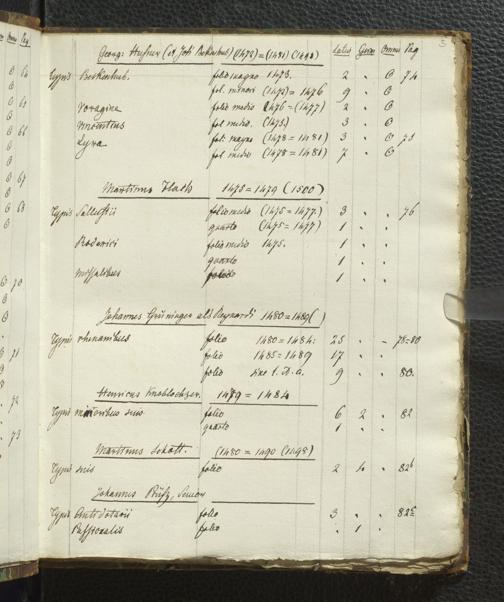 5
Georg: Husner (et Joh: Bekenhub) (1473) = (1481) (1498) Latus Germ Omnis Pag
Typis Bekenhub. folio magno 1473. 2 " 74
fol. minori (1473) = 1476 9 "
Voragine folio medio 1476 = (1477) 2 "
Vincentius fol medio. (1475) 3 "
Lyra fol. magno (1478 = 1481) 3 " 75
fol medio (1478 = 1481) 7 "
Martinus Flach 1475 = 1479 (1500)
Typis Sallustii folio medio (1475 = 1477.) 3 " " 76
quarto (1475 = 1477) 1 " "
Roderici folio medio 1475. 1 " "
quarto 1 " "
Missalibus folio 1 " "
Johannes Grüninger als Reynardi 1480 = 1489( )
Typis rhenanibus folio 1480 = 1484. 25 " - 78=80
folio 1485 = 1489 17 " "
folio sine t. d. a. 9 " " 80.
Henricus Knoblochzer. 1479 = 1484
Typis minoribus suis folio 6 2 " 82
quarto 1 " "
Martinus Schott. (1480 = 1490 (1498)
Typis suis folio 2 4 " 82b
Johannes Prüß, Senior
Typis Antidotarii folio 3 " " 82c
Passionalis folio " 1 "